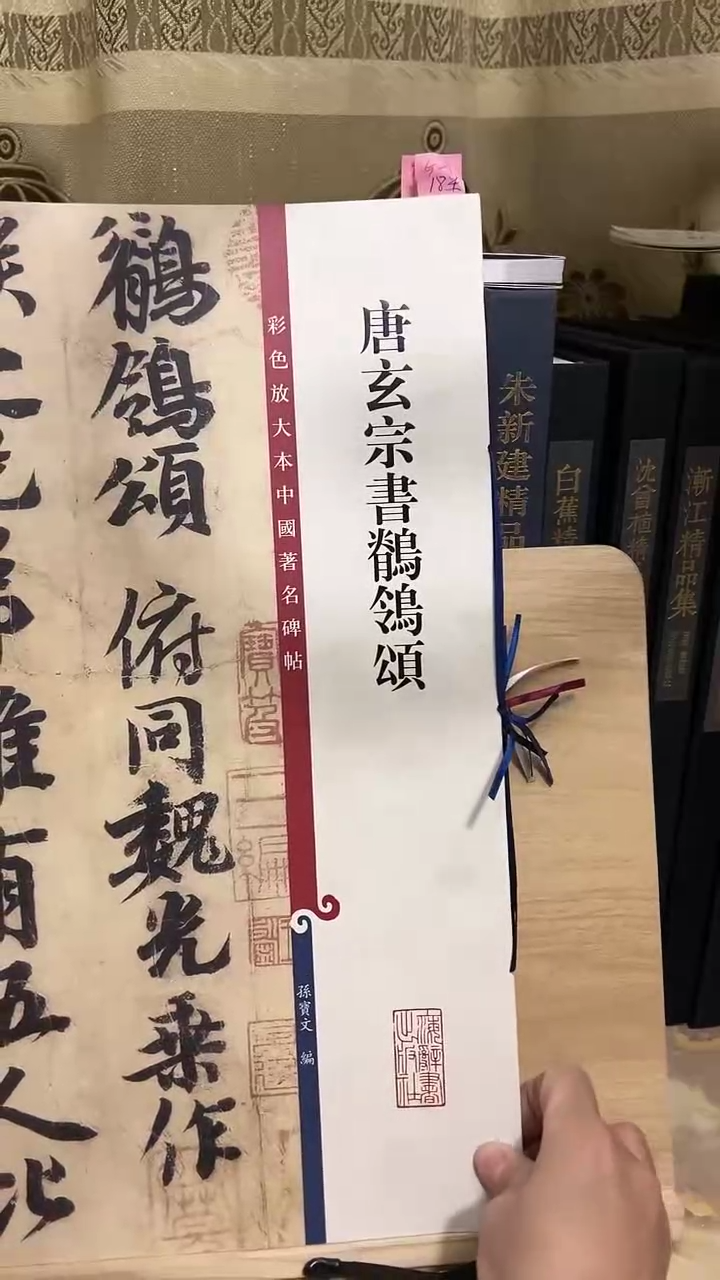 唐玄宗書鶺鴒頌
彩色放大本中國著名碑帖
孫寶文 編
上海辭書出版社
鶺鴒頌 俯同魏光乘作
有五人比
朱新建精品
白蕉精
沈曾植精
漸江精品集